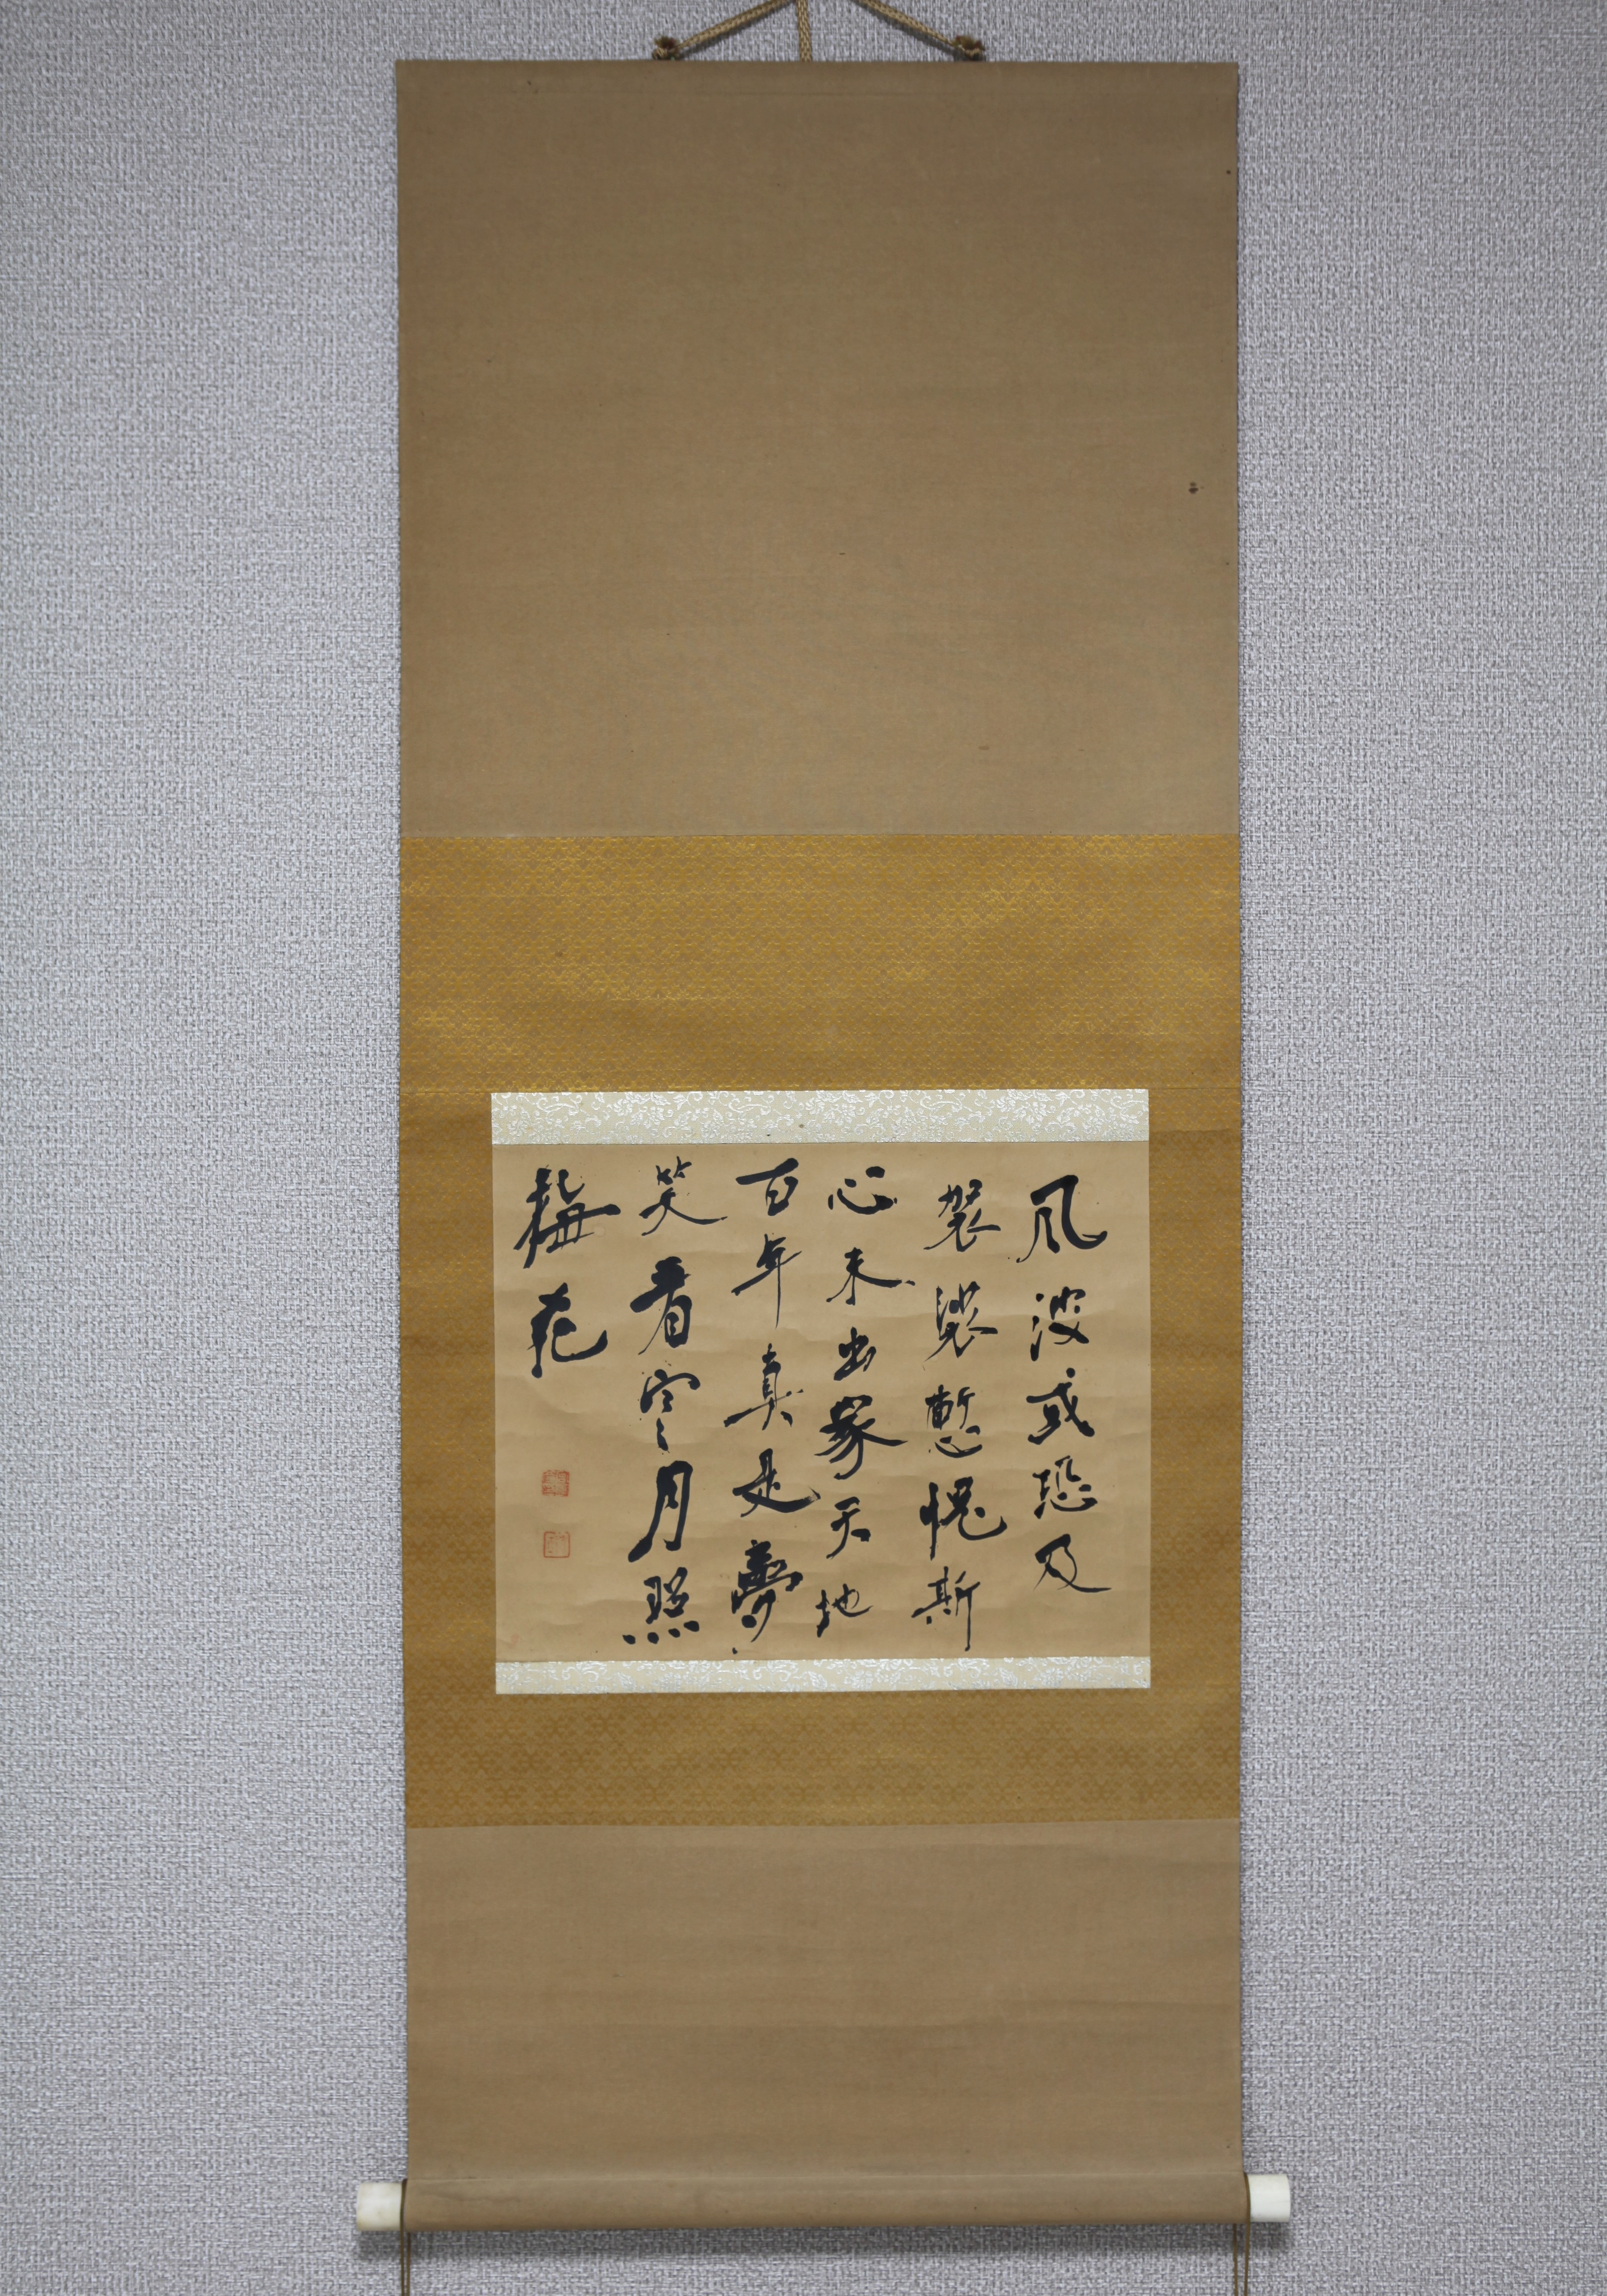 風波或恐及
袈裟慙愧斯
心未出家天地
百年真是夢
笑看寒月照
梅花